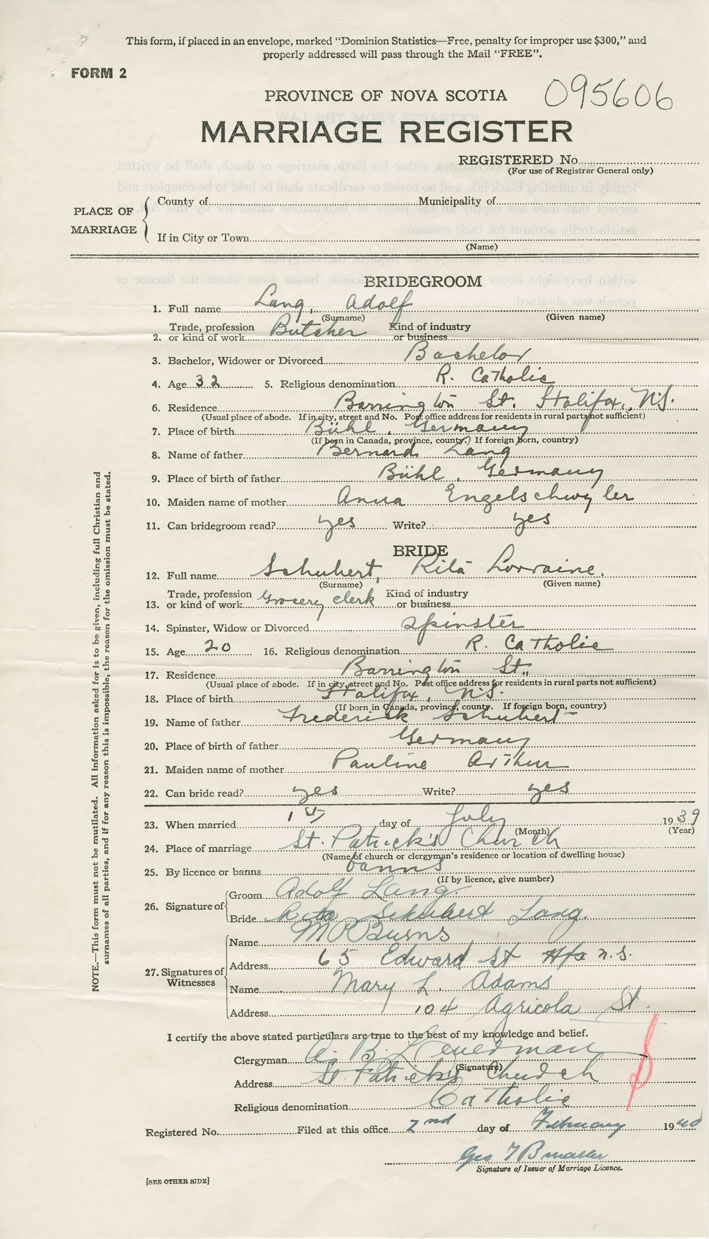 This form, if placed in an envelope, marked "Dominion Statistics—Free, penalty for improper use $300," and
properly addressed will pass through the Mail "FREE".
FORM 2
PROVINCE OF NOVA SCOTIA 095606
MARRIAGE REGISTER
REGISTERED No.
(For use of Registrar General only)
PLACE OF MARRIAGE
County of Municipality of
If in City or Town
(Name)
BRIDEGROOM
1. Full name Lang, Adolf
(Surname) (Given name)
2. Trade, profession or kind of work Butcher Kind of industry or business
3. Bachelor, Widower or Divorced Bachelor
4. Age 32 5. Religious denomination R. Catholic
6. Residence Barrington St. Halifax, N.S.
(Usual place of abode. If in city, street and No. Post office address for residents in rural parts not sufficient)
7. Place of birth Bühl, Germany
(If born in Canada, province, county. If foreign born, country)
8. Name of father Bernard Lang
9. Place of birth of father Bühl, Germany
10. Maiden name of mother Anna Engelschwyler
11. Can bridegroom read? yes Write? yes
BRIDE
12. Full name Schubert, Rita Lorraine.
(Surname) (Given name)
13. Trade, profession or kind of work Grocery clerk Kind of industry or business
14. Spinster, Widow or Divorced Spinster
15. Age 20 16. Religious denomination R. Catholic
17. Residence Barrington St.
(Usual place of abode. If in city, street and No. Post office address for residents in rural parts not sufficient)
18. Place of birth Halifax, N.S.
(If born in Canada, province, county. If foreign born, country)
19. Name of father Frederick Schubert
20. Place of birth of father Germany
21. Maiden name of mother Pauline Arthur
22. Can bride read? yes Write? yes
23. When married 1st day of July 1939
(Month) (Year)
24. Place of marriage St. Patrick's Church
(Name of church or clergyman's residence or location of dwelling house)
25. By licence or banns banns
(If by licence, give number)
26. Signature of
Groom Adolf Lang.
Bride Rita Schubert Lang.
27. Signatures of Witnesses
Name M R Burns
Address 65 Edward St Hfx N.S.
Name Mary L. Adams
Address 104 Agricola St.
I certify the above stated particulars are true to the best of my knowledge and belief.
Clergyman
(Signature)
Address St Patricks Church
Religious denomination Catholic
Registered No. Filed at this office 2nd day of February 1940
Geo
Signature of Issuer of Marriage Licence.
[SEE OTHER SIDE]
NOTE.—This form must not be mutilated. All information asked for is to be given, including full Christian and
surnames of all parties, and if for any reason this is impossible, the reason for the omission must be stated.